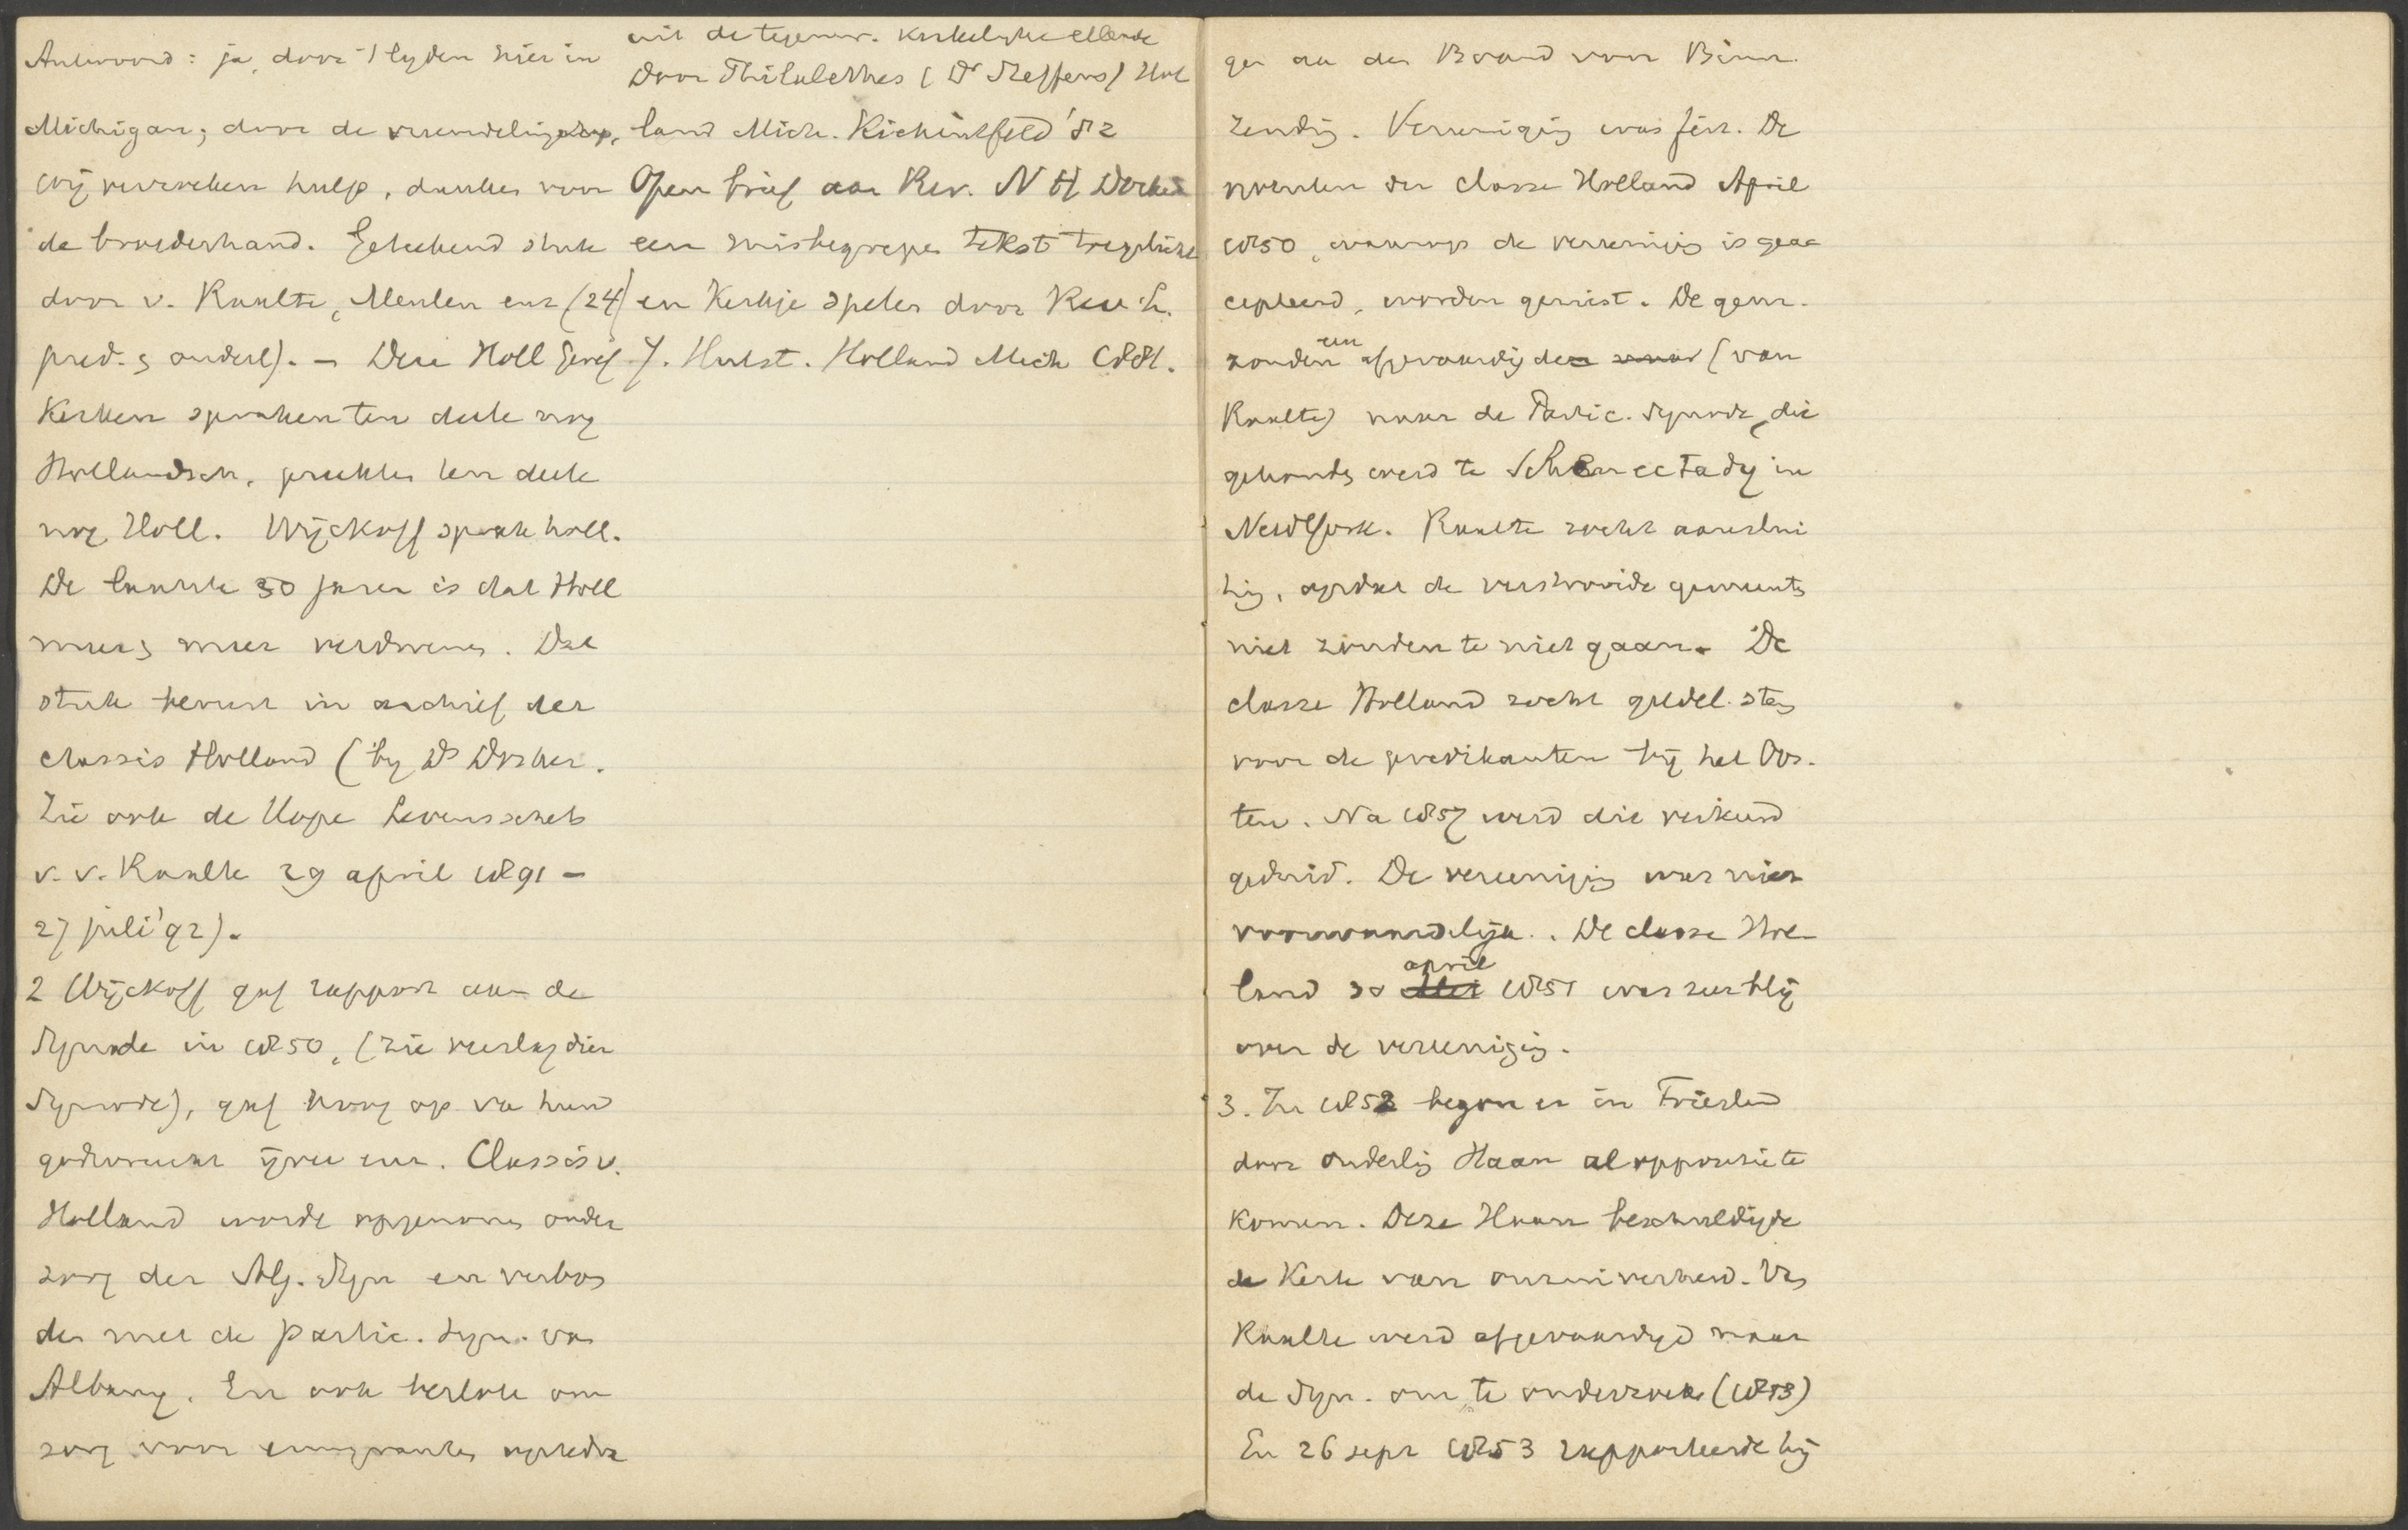 Antwoord: ja, door 't lijden hier in
Michigan; door de vreemdelingschap,
wij verzoeken hulp, danken voor
de broederhand. Geteekend stuk
door v. Raalte, Meulen enz (24
pred. en ouderl). — Deze Holl Geref
Kerken spraken ten deele nog
Hollandsch, preekten ten deele
nog Holl. Wijckoff sprak holl.
De laatste 30 jaren is dat Holl
meer en meer verdwenen. Dat
stuk berust in archief der
classis Holland (bij Ds Dosker.
Zie ook de Hope Levensschets
v. v. Raalte 29 april 1891 —
27 juli '92).
2 Wijckoff gaf rapport aan de
Synode in 1850, (zie verslag dier
Synode), gaf hoog op van hun
godvrucht ijver enz. Classis v.
Holland worde opgenomen onder
zorg der Alg. Syn en verbon
den met de partic. syn. van
Albany. En ook besloten om
zorg voor emigranten
uit de tegenw. kerkelijke ellende
Door Philalethes (Dr Steffens) Hol
land Mich. Kichintfeld '82
Open brief aan Rev. N H Dosker
een misbegrepen tekst toegelicht
en Kerkje spelen door Rev. L.
J. Hulst. Holland Mich 1881.
gen aan den Board voor Binn.
Zending. Vereeniging was feit. De
notulen der classe Holland April
1850, waarop de vereeniging is geac
cepteerd, worden gemist. De gem.
zonden een afgevaardigden (van
Raalte) naar de Partic. Synode, die
gehouden werd te Schenectady in
New York. Raalte zocht aanslui
ting, opdat de verstrooide gemeenten
niet zouden te niet gaan. De
classe Holland zocht geldel. steun
voor de predikanten bij het Oos-
ten. Na 1857 werd die
De vereeniging was niet
voorwaardelijk. De classe Hol-
land 30 april 1851 was zeer blij
over de vereeniging.
3. In 1852 begon er in Friesland
door ouderling Haan al oppositie te
komen. Deze Haan beschuldigde
de Kerk van onzuiverheid. Van
Raalte werd afgevaardigd naar
de Syn. om te onderzoeken (1853)
En 26 sept 1853 rapporteerde hij